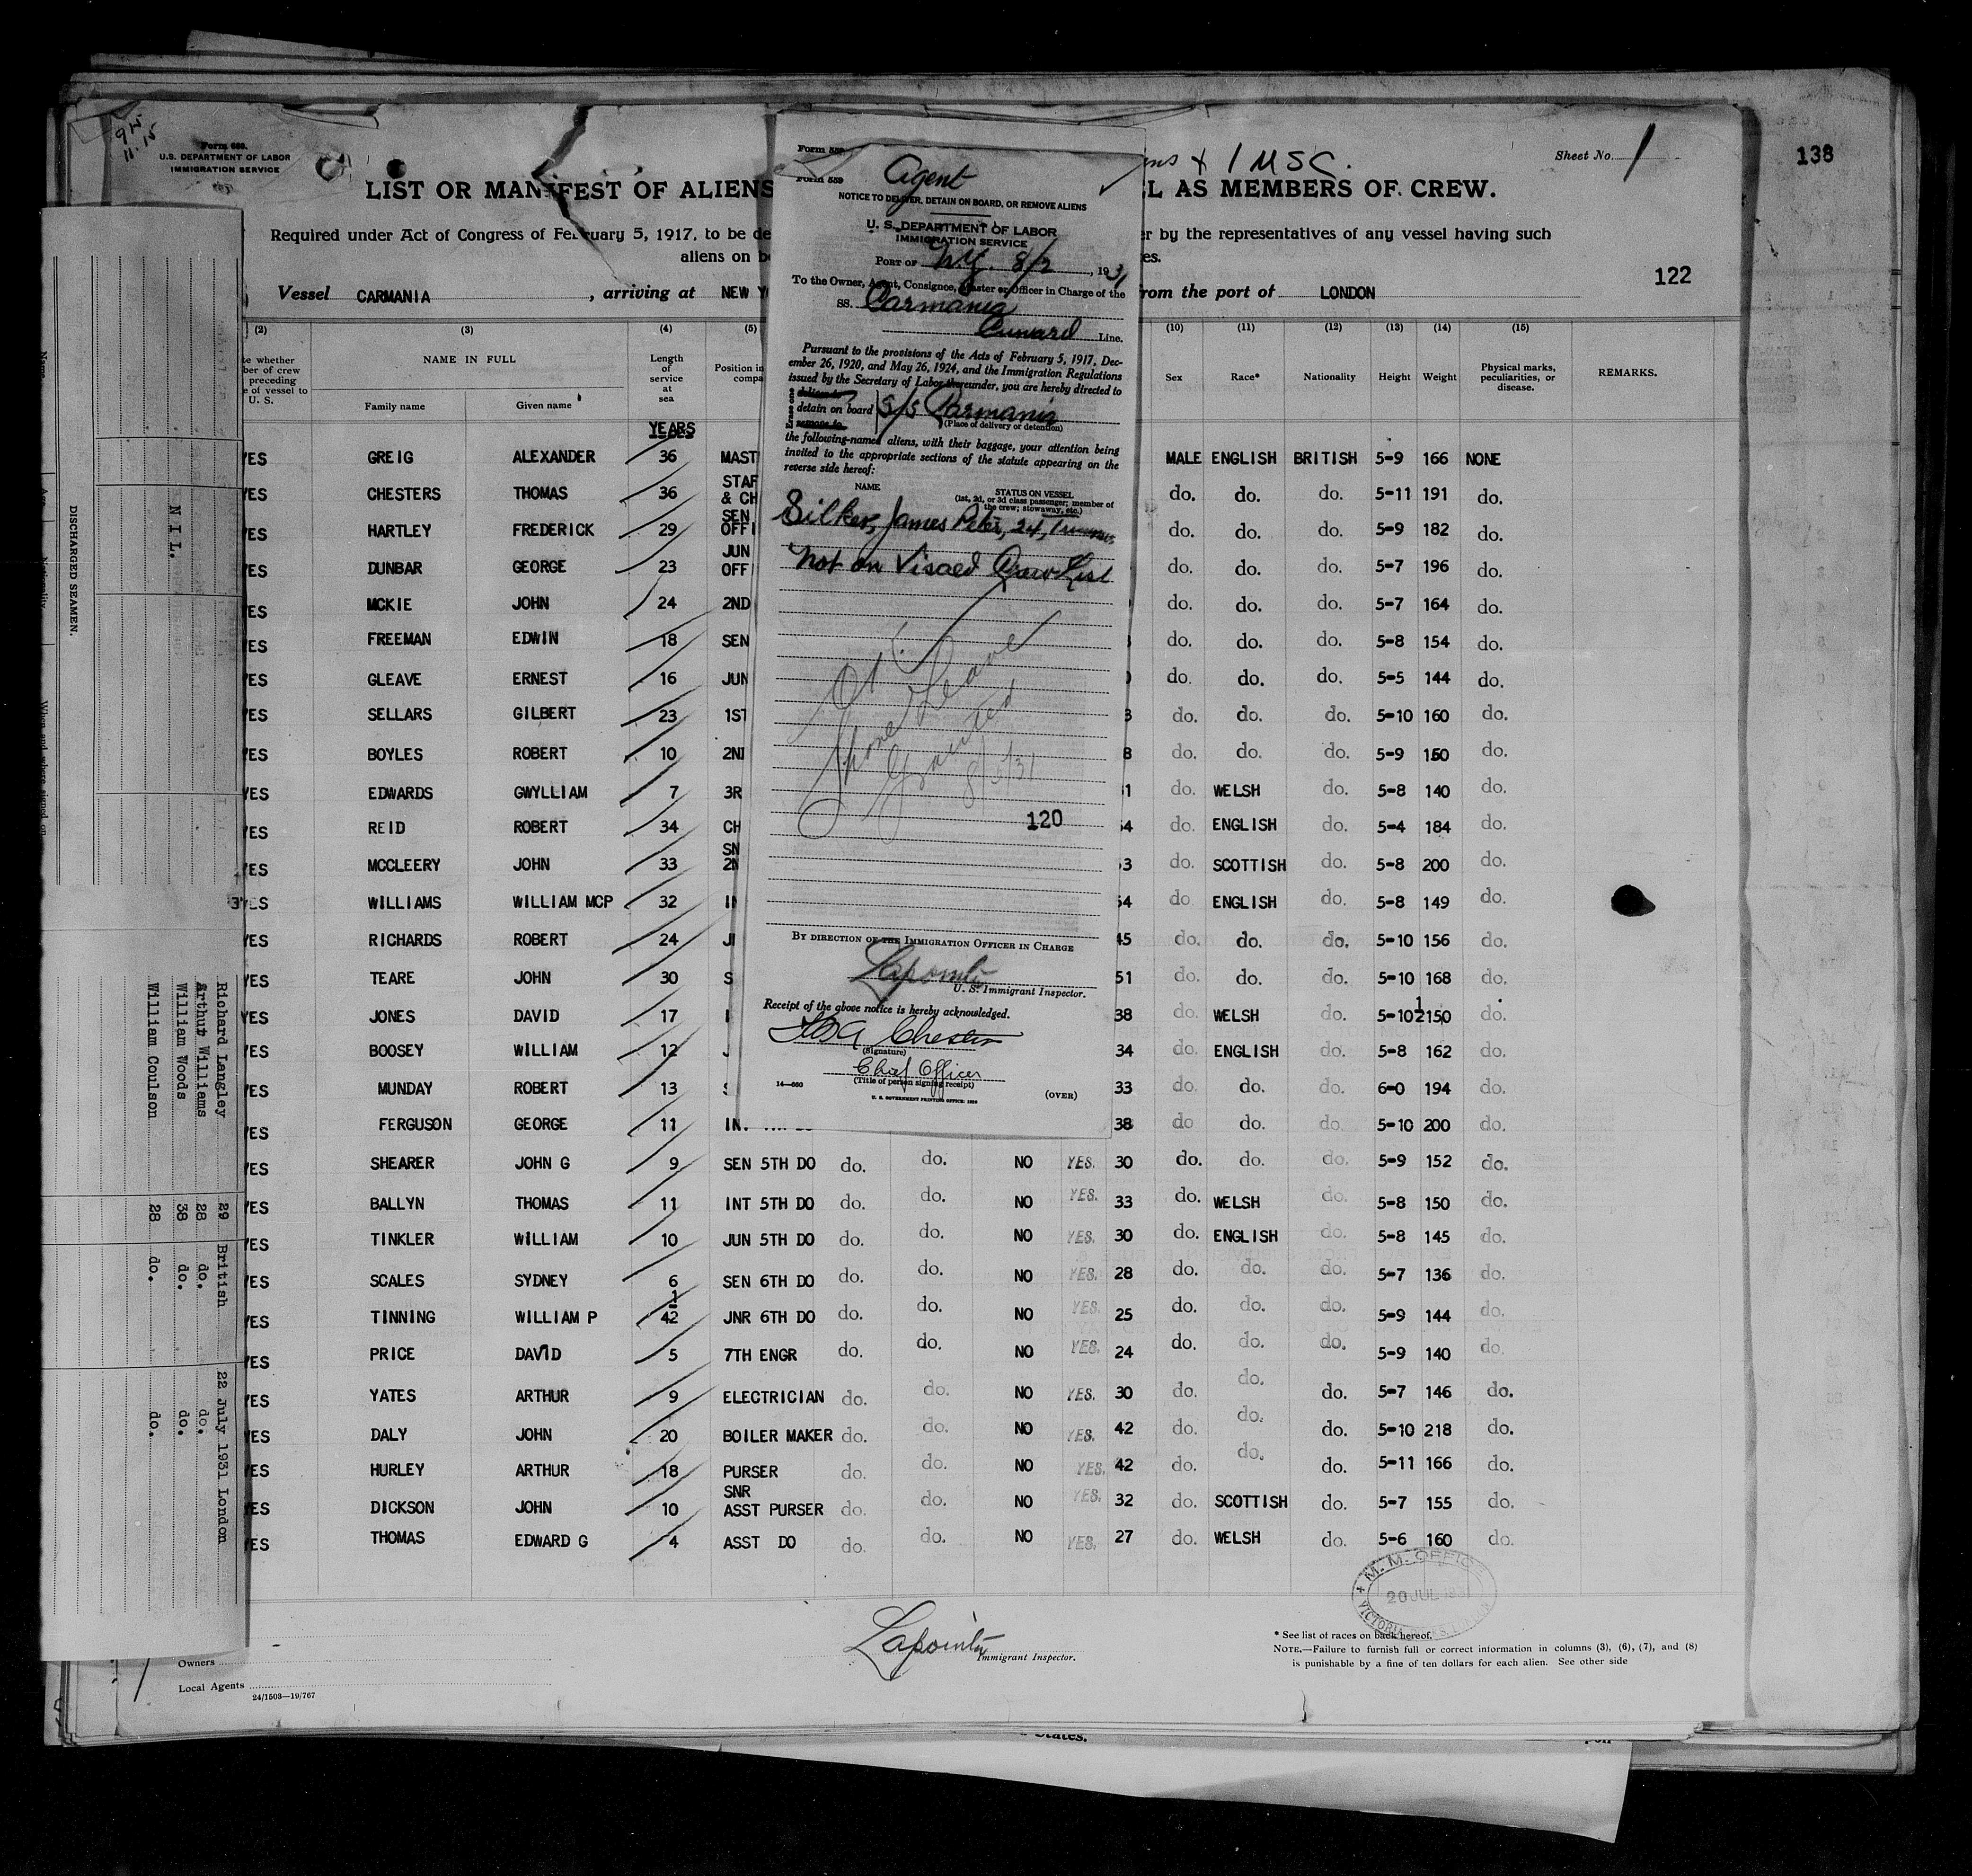 138
9 15
11.15
Form 689.
U.S. DEPARTMENT OF LABOR
IMMIGRATION SERVICE
+ 1 MSC.
Sheet No. 1
LIST OR MANIFEST OF ALIENS
AS MEMBERS OF CREW.
Required under Act of Congress of February 5, 1917, to be de
er by the representatives of any vessel having such
aliens on b
es.
122
Vessel CARMANIA , arriving at NEW Y
from the port of LONDON
(2) (3) (4) (5) (10) (11) (12) (13) (14) (15)
NAME IN FULL
Family name Given name
Length of service at sea
Position in
compa
Sex Race* Nationality Height Weight
Physical marks, peculiarities, or disease.
REMARKS.
YEARS
YES GREIG ALEXANDER 36 MAST MALE ENGLISH BRITISH 5-9 166 NONE
YES CHESTERS THOMAS 36 STAF & CH do. do. do. 5-11 191 do.
YES HARTLEY FREDERICK 29 SEN OFFI do. do. do. 5-9 182 do.
YES DUNBAR GEORGE 23 JUN OFF do. do. do. 5-7 196 do.
YES MCKIE JOHN 24 2ND do. do. do. 5-7 164 do.
YES FREEMAN EDWIN 18 SEN do. do. do. 5-8 154 do.
YES GLEAVE ERNEST 16 JUN do. do. do. 5-5 144 do.
YES SELLARS GILBERT 23 1ST 3 do. do. do. 5-10 160 do.
YES BOYLES ROBERT 10 2N 8 do. do. do. 5-9 150 do.
YES EDWARDS GWYLLIAM 7 3R 1 do. WELSH do. 5-8 140 do.
YES REID ROBERT 34 CH 54 do. ENGLISH do. 5-4 184 do.
YES MCCLEERY JOHN 33 SN 2N 53 do. SCOTTISH do. 5-8 200 do.
YES WILLIAMS WILLIAM MCP 32 IN 54 do ENGLISH do. 5-8 149 do.
YES RICHARDS ROBERT 24 J 45 do. do. do. 5-10 156 do.
YES TEARE JOHN 30 S 51 do. do. do. 5-10 168 do.
YES JONES DAVID 17 38 do. WELSH do. 5-10½ 150 do.
YES BOOSEY WILLIAM 12 J 34 do. ENGLISH do. 5-8 162 do.
YES MUNDAY ROBERT 13 S 33 do. do. do. 6-0 194 do.
YES FERGUSON GEORGE 11 IN. 38 do do. do. 5-10 200 do.
YES SHEARER JOHN G 9 SEN 5TH DO do. do. NO YES. 30 do. do. do. 5-9 152 do.
YES BALLYN THOMAS 11 INT 5TH DO do. do. NO YES. 33 do. WELSH do. 5-8 150 do.
YES TINKLER WILLIAM 10 JUN 5TH DO do. do. NO YES. 30 do. ENGLISH do. 5-8 145 do.
YES SCALES SYDNEY 6 SEN 6TH DO do. do. NO YES. 28 do. do. do. 5-7 136 do.
YES TINNING WILLIAM P 4½ JNR 6TH DO do. do. NO YES. 25 do. do. do. 5-9 144 do.
YES PRICE DAVID 5 7TH ENGR do. do. NO YES. 24 do. do. do. 5-9 140 do.
YES YATES ARTHUR 9 ELECTRICIAN do. do. NO YES. 30 do. do. do. 5-7 146 do.
YES DALY JOHN 20 BOILER MAKER do. do. NO YES. 42 do. do. do. 5-10 218 do.
YES HURLEY ARTHUR 18 PURSER do. do. NO YES. 42 do. do. do. 5-11 166 do.
YES DICKSON JOHN 10 SNR ASST PURSER do. do. NO YES. 32 do. SCOTTISH do. 5-7 155 do.
YES THOMAS EDWARD G 4 ASST DO do. do. NO YES. 27 do. WELSH do. 5-6 160 do.
M. M. OFFICE
20 JUL 1931
VICTORIA
Lapointe
Immigrant Inspector.
Owners
Local Agents
24/1503—19/767
* See list of races on back hereof.
NOTE.—Failure to furnish full or correct information in columns (3), (6), (7), and (8)
is punishable by a fine of ten dollars for each alien. See other side
Form 559
Agent
NOTICE TO DELIVER, DETAIN ON BOARD, OR REMOVE ALIENS
U. S. DEPARTMENT OF LABOR
IMMIGRATION SERVICE
PORT OF N.Y. 8/2, 1931
To the Owner, Agent, Consignee, Master or Officer in Charge of the
SS. Carmania
Cunard Line.
Pursuant to the provisions of the Acts of February 5, 1917, Dec-
ember 26, 1920, and May 26, 1924, and the Immigration Regulations
issued by the Secretary of Labor thereunder, you are hereby directed to
Erase one
deliver to
detain on board S/S Carmania
remove to
(Place of delivery or detention)
the following-named aliens, with their baggage, your attention being
invited to the appropriate sections of the statute appearing on the
reverse side hereof:
NAME
STATUS ON VESSEL
(1st, 2d, or 3d class passenger; member of
the crew; stowaway, etc.)
Silker, James Peter, 24,
Not on Visaed Crew List
Shore Leave
Granted
120
BY DIRECTION OF THE IMMIGRATION OFFICER IN CHARGE
Lapointe
U. S. Immigrant Inspector.
Receipt of the above notice is hereby acknowledged.
(Signature)
Chief Officer
(Title of person signing receipt)
14—660
U. S. GOVERNMENT PRINTING OFFICE: 1930
(OVER)
DISCHARGED SEAMEN.
NIL.
Richard Langley 29 British 22 July 1931 London
Arthur Williams 28 do. do.
William Woods 38 do. do.
William Coulson 28 do. do.
States.